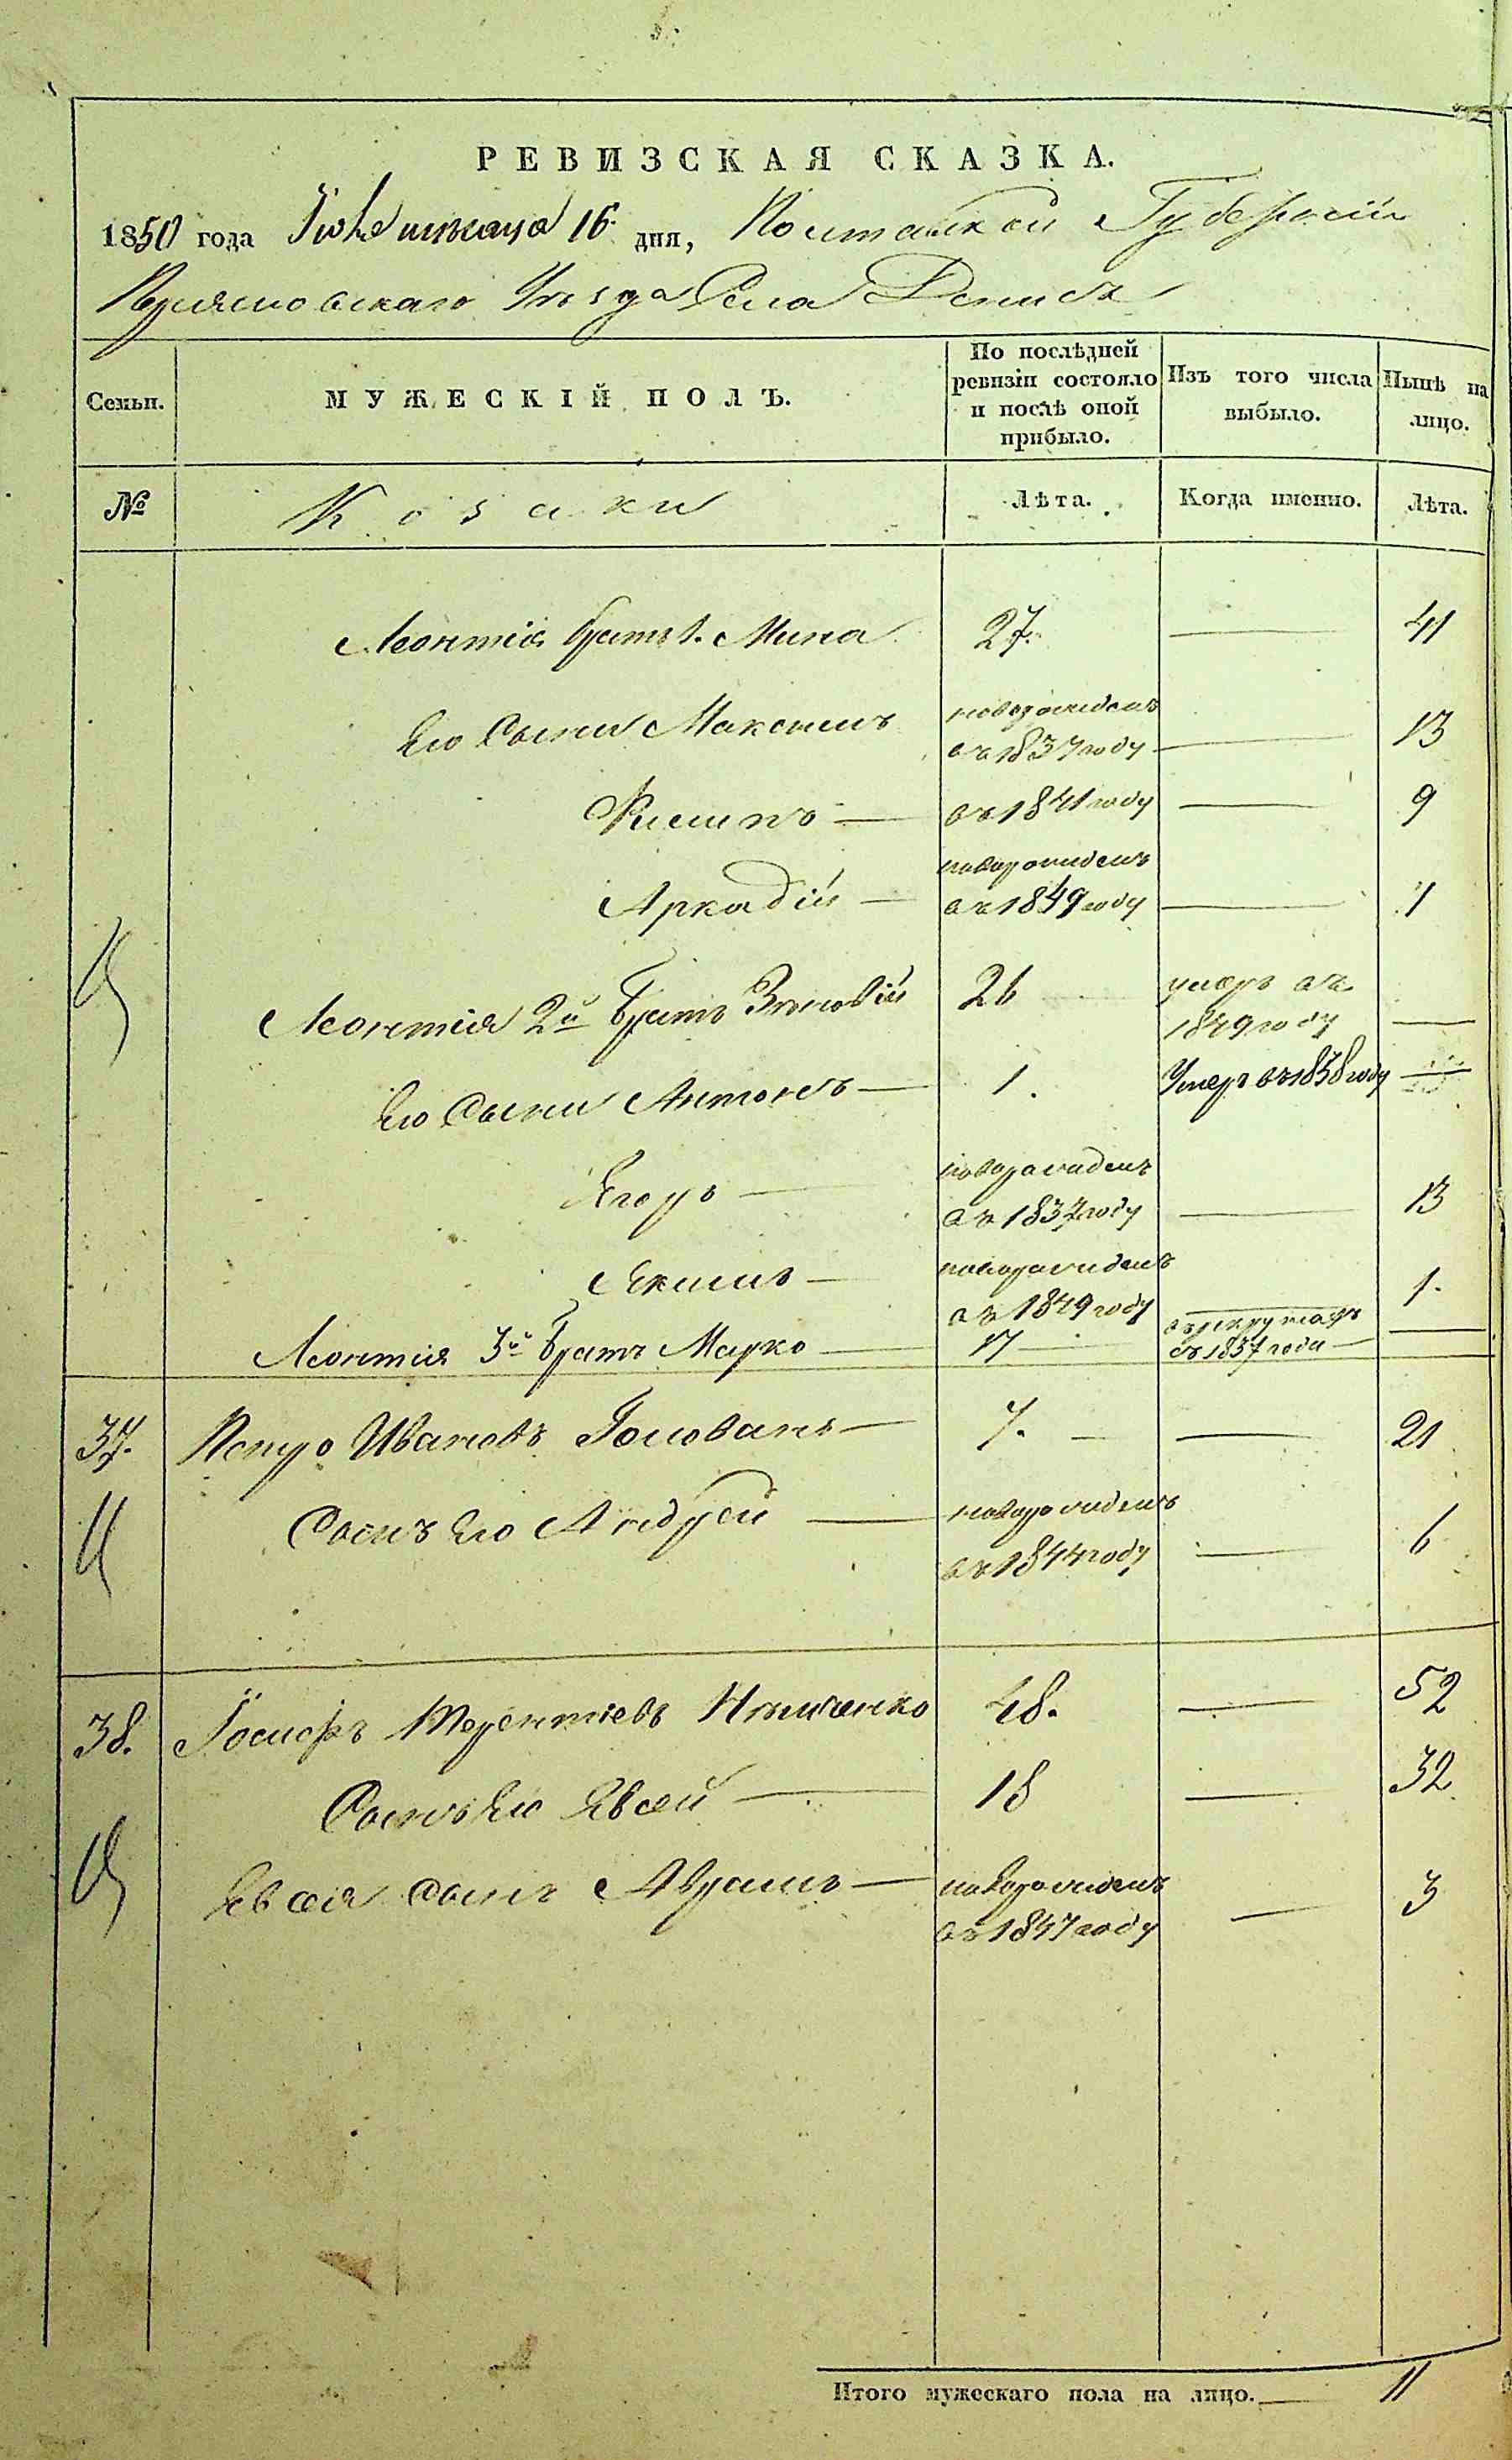 РЕВИЗСКАЯ СКАЗКА.
1850 года Іюля мѣсяца 16 дня, Полтавской Губерніи
Переяславскаго Уѣзда Села Денисъ
Семьи.
МУЖЕСКІЙ ПОЛЪ.
По послѣдней ревизіи состояло и послѣ оной прибыло.
Изъ того числа выбыло.
Нынѣ на лицо.
№
Козаки
Лѣта.
Когда именно.
Лѣта.
Леонтія братъ 1. Мина 27. — 41
Его Сыни Максимъ новорожденъ въ 1837 году — 13
Филипъ — въ 1841 году — 9
Аркадій — новорожденъ въ 1849 году — 1
Леонтія 2й Братъ Зѣновій 26 умеръ въ 1849 году —
Его Сыни Антонъ — 1. Умеръ въ 1838 году —
Егоръ — новорожденъ въ 1837 году — 13
Якимъ — новорожденъ въ 1849 году — 1.
Леонтія 3й Братъ Марко — 17 въ рекрутахъ съ 1837 года —
37. Петро ИвановъГолованъ — 7. — — 21
Сынъ Его Андрей — новорожденъ въ 1844 году — 6
38. Іосифъ Терентіевъ 48. — 52
Сынъ Его Евсей — 18 — 32
Евсея Сынъ Абрамъ — новорожденъ въ 1847 году — 3
Итого мужескаго пола на лицо. — 11